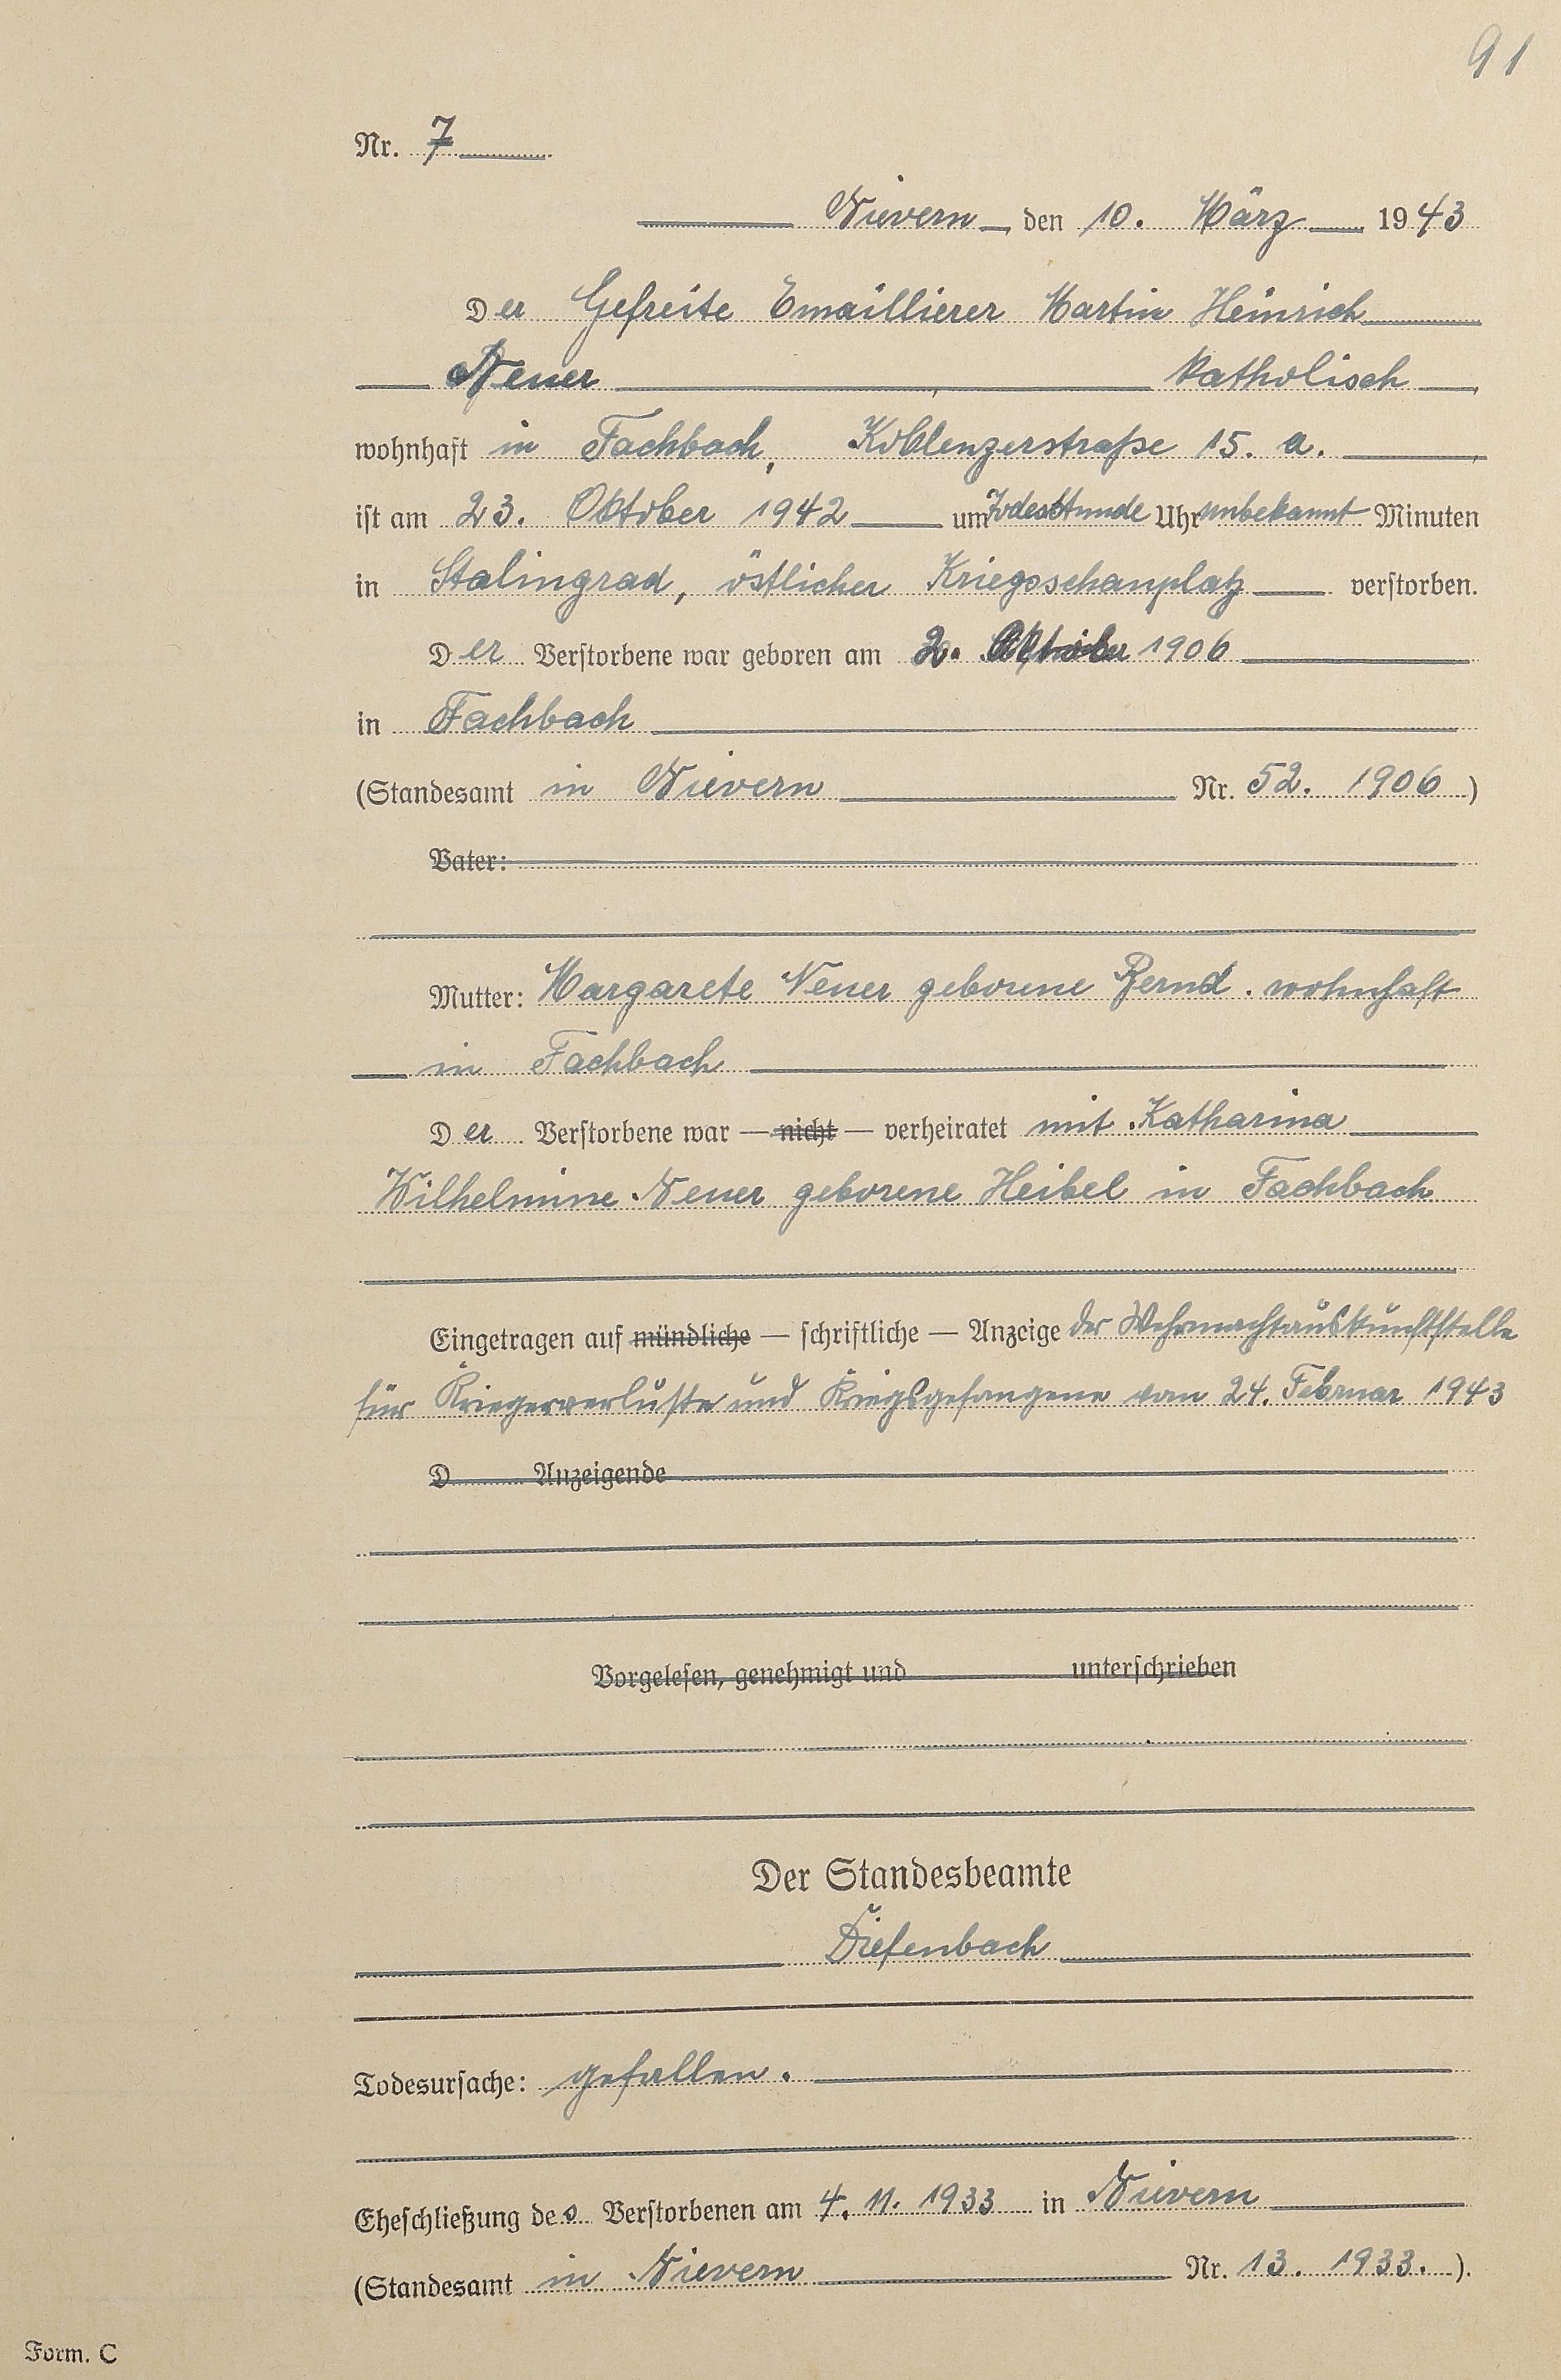 91
Nr. 7
Nievern, den 10. März 1943
Der Gefreite Emaillierer Martin Heinrich
Neuer, katholisch,
wohnhaft in Fachbach, Koblenzerstraße 15. a.,
ist am 23. Oktober 1942 um Todesstunde Uhr unbekannt Minuten
in Stalingrad, östlicher Kriegsschauplatz verstorben.
Der Verstorbene war geboren am 2. Oktober 1906
in Fachbach
(Standesamt in Nievern Nr. 52. 1906)
Vater:
Mutter: Margarete Neuer geborene Bernd. wohnhaft
in Fachbach
Der Verstorbene war — nicht — verheiratet mit Katharina
Wilhelmine Neuer geborene Heibel in Fachbach
Eingetragen auf mündliche — schriftliche — Anzeige der Wehrmachtauskunftstelle
für Kriegerverluste und Kriegsgefangene vom 24. Februar 1943
D Anzeigende
Vorgelesen, genehmigt und unterschrieben
Der Standesbeamte
Diefenbach
Todesursache: gefallen.
Eheschließung des Verstorbenen am 4. 11. 1933 in Nievern
(Standesamt in Nievern Nr. 13. 1933.).
Form. C